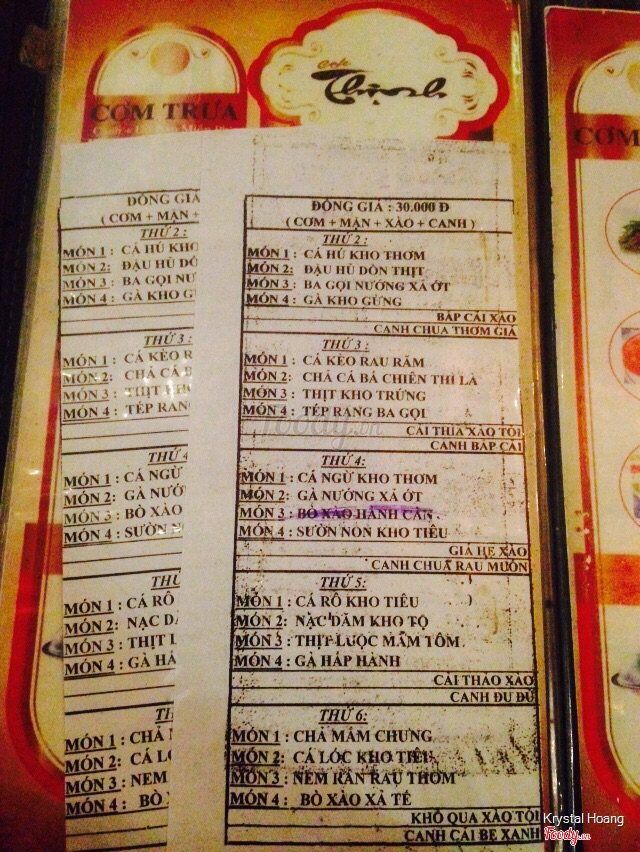 CƠM TRƯA
Cafe
Thịnh
CƠM
ĐỒNG GIÁ
( CƠM + MẶN +
THỨ 2 :
MÓN 1 : CÁ HÚ KHO
MÓN 2: ĐẬU HỦ DỒN
MÓN 3 : BA GỌI NƯỚNG
MÓN 4 : GÀ KHO GỪNG
THỨ 3 :
MÓN 1 : CÁ KÈO RAU
MÓN 2: CHẢ CÁ
MÓN 3 : THỊT KHO
MÓN 4 : TÉP RANG
THỨ 4
MÓN 1 : CÁ NGỪ
MÓN 2: GÀ NƯỚNG
MÓN 3 : BÒ XÀO
MÓN 4 : SƯỜN NON
THỨ
MÓN 1 : CÁ RÔ
MÓN 2: NẠC
MÓN 3 : THỊT
MÓN 4 : GÀ HẤP
MÓN 1 : CHẢ
MÓN 2: CÁ LÓC
MÓN 3 : NEM
MÓN 4 : BÒ XÀO
ĐỒNG GIÁ : 30.000 Đ
( CƠM + MẶN + XÀO + CANH )
THỨ 2 :
MÓN 1 : CÁ HÚ KHO THƠM
MÓN 2: ĐẬU HỦ DỒN THỊT
MÓN 3 : BA GỌI NƯỚNG XẢ ỚT
MÓN 4 : GÀ KHO GỪNG
BẮP CẢI XÀO
CANH CHUA THƠM GIÁ
THỨ 3 :
MÓN 1 : CÁ KÈO RAU RĂM
MÓN 2: CHẢ CÁ BẢ CHIÊN THÌ LÀ
MÓN 3 : THỊT KHO TRỨNG
MÓN 4 : TÉP RANG BA GỌI
CẢI THÌA XÀO TỎI
CANH BẮP CẢI
THỨ 4:
MÓN 1 : CÁ NGỪ KHO THƠM
MÓN 2: GÀ NƯỚNG XẢ ỚT
MÓN 3 : BÒ XÀO HÀNH CẦN
MÓN 4 : SƯỜN NON KHO TIÊU
GIÁ HẸ XÀO
CANH CHUA RAU MUỐN
THỨ 5:
MÓN 1 : CÁ RÔ KHO TIÊU
MÓN 2: NẠC DĂM KHO TỘ
MÓN 3 : THỊT LUỘC MẮM TÔM
MÓN 4 : GÀ HẤP HÀNH
CẢI THẢO XÀO
CANH ĐU ĐỦ
THỨ 6:
MÓN 1 : CHẢ MẮM CHƯNG
MÓN 2: CÁ LÓC KHO TIÊU
MÓN 3 : NEM RÁN RAU THƠM
MÓN 4 : BÒ XÀO XA TẾ
KHỔ QUA XÀO TỎI
CANH CẢI BẸ XANH
foody.vn
Krystal Hoang
Foody.vn